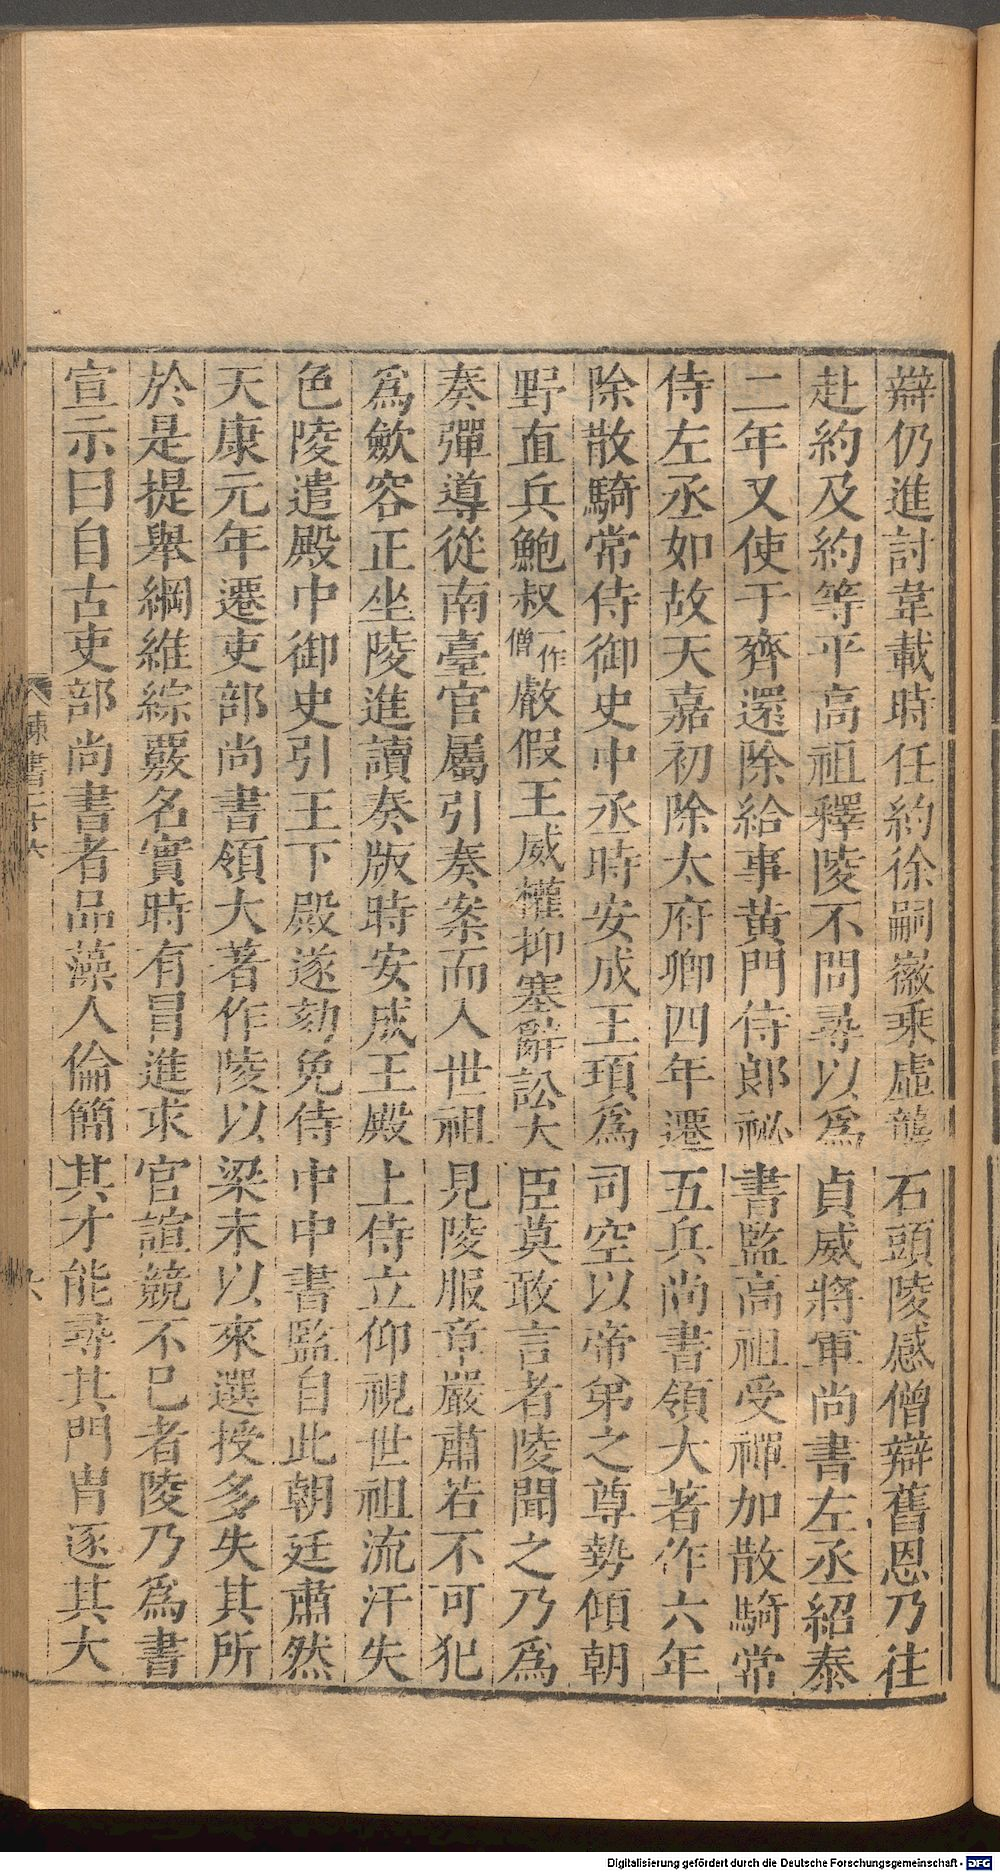 辯仍進討韋載時任約徐嗣徽乘虛襲石頭陵感僧辯舊恩乃往
赴約及約等平高祖釋陵不問尋以爲貞威將軍尚書左丞紹泰
二年又使于齊還除給事黃門侍郎祕書監高祖受禪加散騎常
侍左丞如故天嘉初除太府卿四年遷五兵尚書領大著作六年
除散騎常侍御史中丞時安成王頊爲司空以帝弟之尊勢傾朝
野直兵鮑叔一作僧叡假王威權抑塞辭訟大臣莫敢言者陵聞之乃爲
奏彈導從南臺官屬引奏案而入世祖見陵服章嚴肅若不可犯
爲斂容正坐陵進讀奏版時安成王殿上侍立仰視世祖流汗失
色陵遣殿中御史引王下殿遂劾免侍中中書監自此朝廷肅然
天康元年遷吏部尚書領大著作陵以梁末以來選授多失其所
於是提舉綱維綜覈名實時有冒進求官諠競不已者陵乃爲書
宣示曰自古吏部尚書者品藻人倫簡其才能尋其門胄逐其大
陳書二十六
六
Digitalisierung gefördert durch die Deutsche Forschungsgemeinschaft - DFG